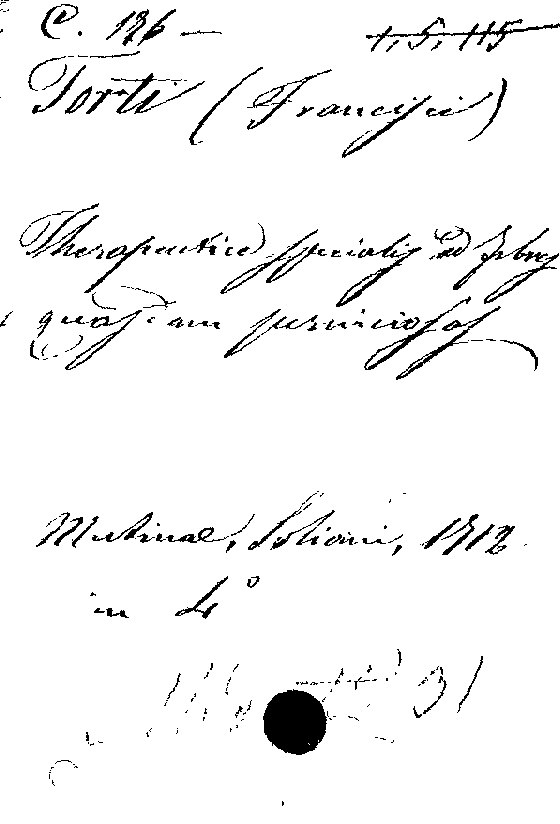 C. 126 — 1,5,115
Torti (Francisci)
Therapeutice specialis ad febres
quasdam perniciosas
Mutinae, Soliani, 1712
in 4°
31